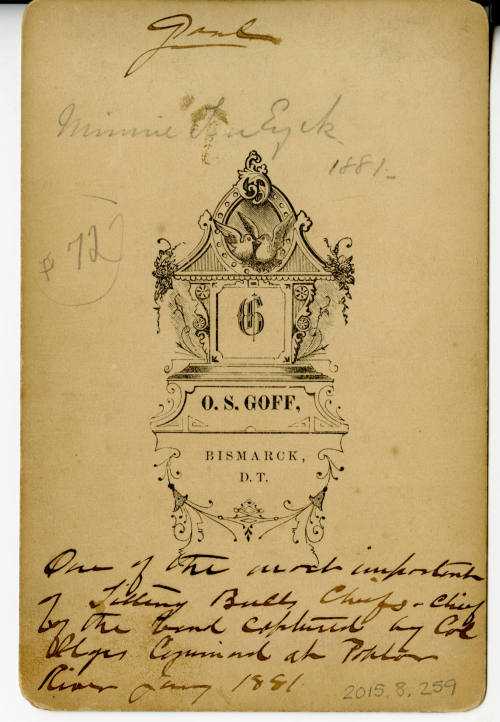 Minnie Ten Eyck
1881.
72
G
O. S. GOFF,
BISMARCK,
D. T.
One of the most important
of Sitting Bulls Chiefs - Chief
of the band captured by Col
Ilges Command at Poplar
River Jany 1881.
2015.8.259